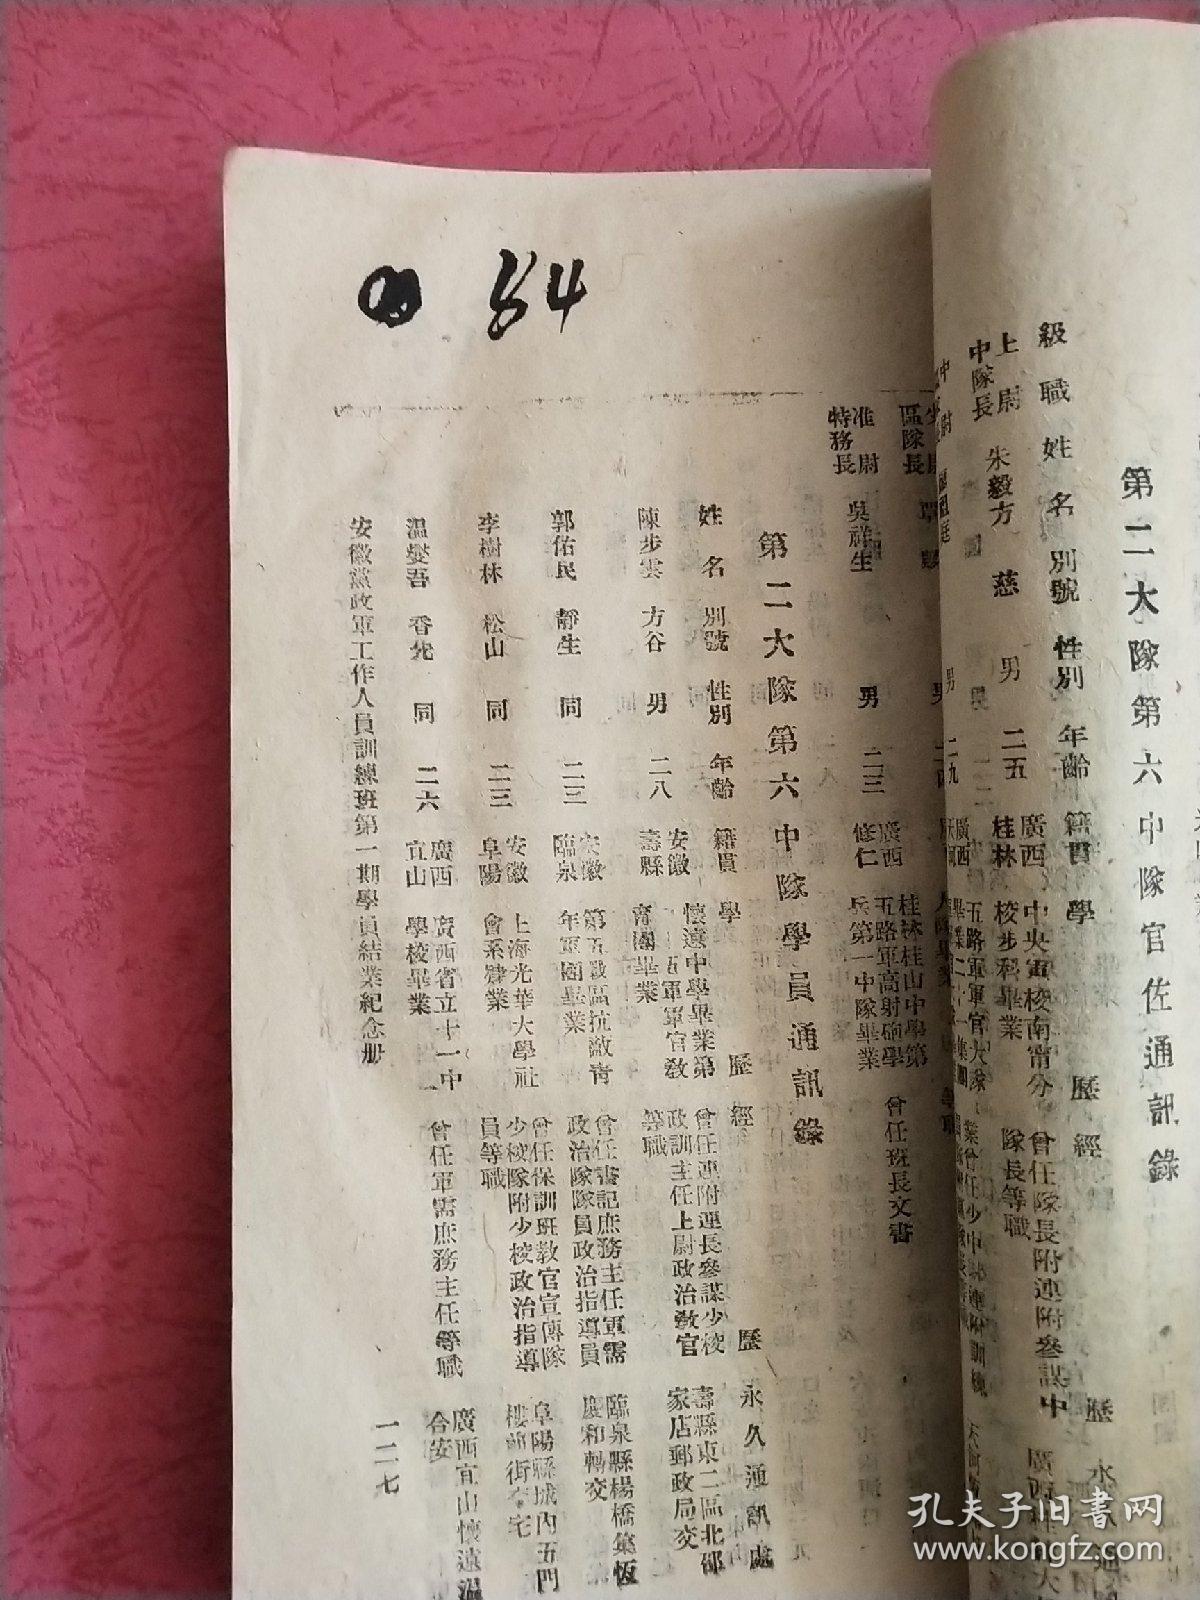 84
第二大隊第六中隊官佐通訊錄
級職 姓名 別號 性別 年齡 籍貫 學歷 經歷 永久通
上尉中隊長 朱毅方 慈 男 二五 廣西桂林 中央軍校南甯分校步科畢業 曾任隊長附連附參謀中隊長等職
准尉特務長 吳祥生 男 二三 廣西修仁 桂林桂山中學第五路軍高射砲學兵第一中隊畢業 曾任班長文書
第二大隊第六中隊學員通訊錄
姓名 別號 性別 年齡 籍貫 學歷 經歷 永久通訊處
陳步雲 方谷 男 二八 安徽壽縣 懷遠中學畢業第五軍軍官教育團畢業 曾任連附連長參謀少校政訓主任上尉政治教官等職 壽縣東二區北邵家店郵政局交
郭佑民 靜生 同 二三 安徽臨泉 第五戰區抗敵青年軍團畢業 曾任書記庶務主任軍需政治隊隊員政治指導員 臨泉縣楊橋集恆慶和轉交
李樹林 松山 同 二三 安徽阜陽 上海光華大學社會系肄業 曾任保訓班教官宣傳隊少校隊附少校政治指導員等職 阜陽縣城內五門樓前街李宅
溫燮吾 同 二六 廣西宜山 廣西省立十一中學校畢業 曾任軍需庶務主任等職 廣西宜山懷遠溫合安
安徽黨政軍工作人員訓練班第一期學員結業紀念册
一二七
孔夫子旧书网
www.kongfz.com